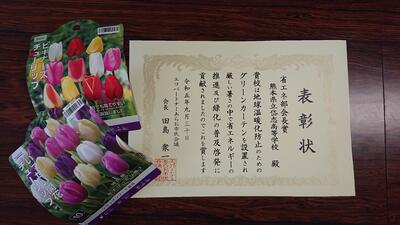 表彰状
省エネ部会長賞
熊本県立岱志高等学校 殿
貴校は地球温暖化防止のための
グリーンカーテンを設置され
厳しい暑さの中で省エネルギーの
推進及び緑化の普及啓発に
貢献されましたのでこれを賞します
令和五年九月三十日
エコパートナーあらお市民会議
会長 田島 衆
ビギナーズ
チューリップ